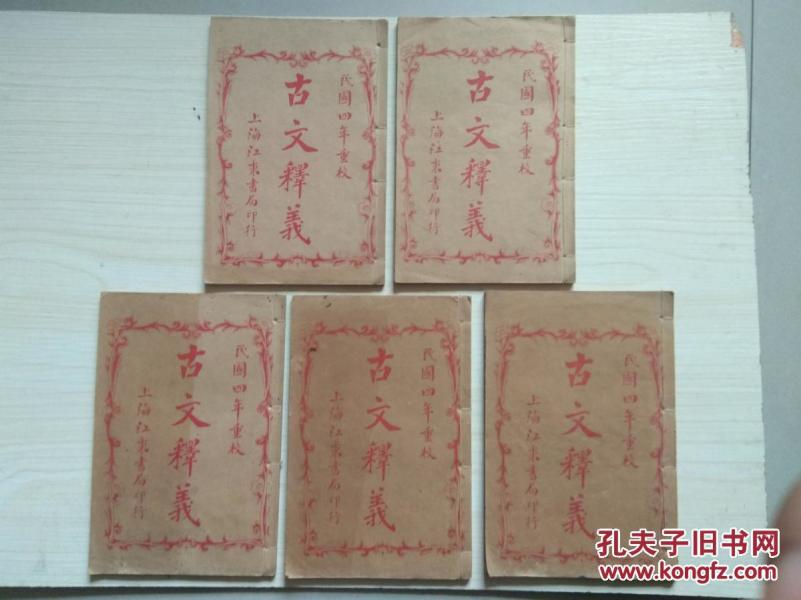 民國四年重校
古文釋義
上海江東書局印行
民國四年重校
古文釋義
上海江東書局印行
民國四年重校
古文釋義
上海江東書局印行
民國四年重校
古文釋義
上海江東書局印行
民國四年重校
古文釋義
上海江東書局印行
孔夫子旧书网
www.kongfz.com